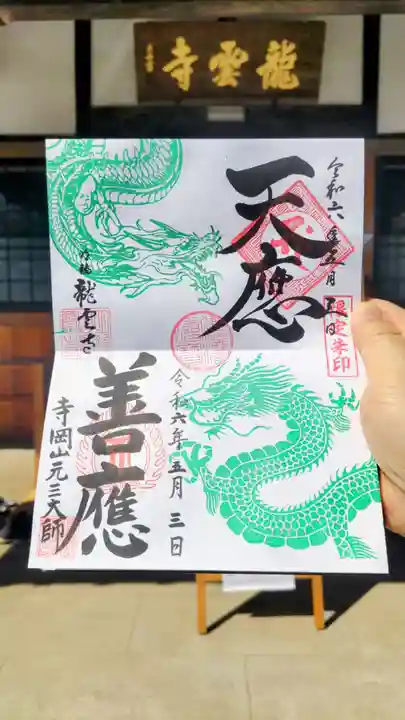 龍雲寺
令和六年五月三日
天應
限定朱印
龍雲寺
令和六年五月三日
善應
寺岡山元三大師